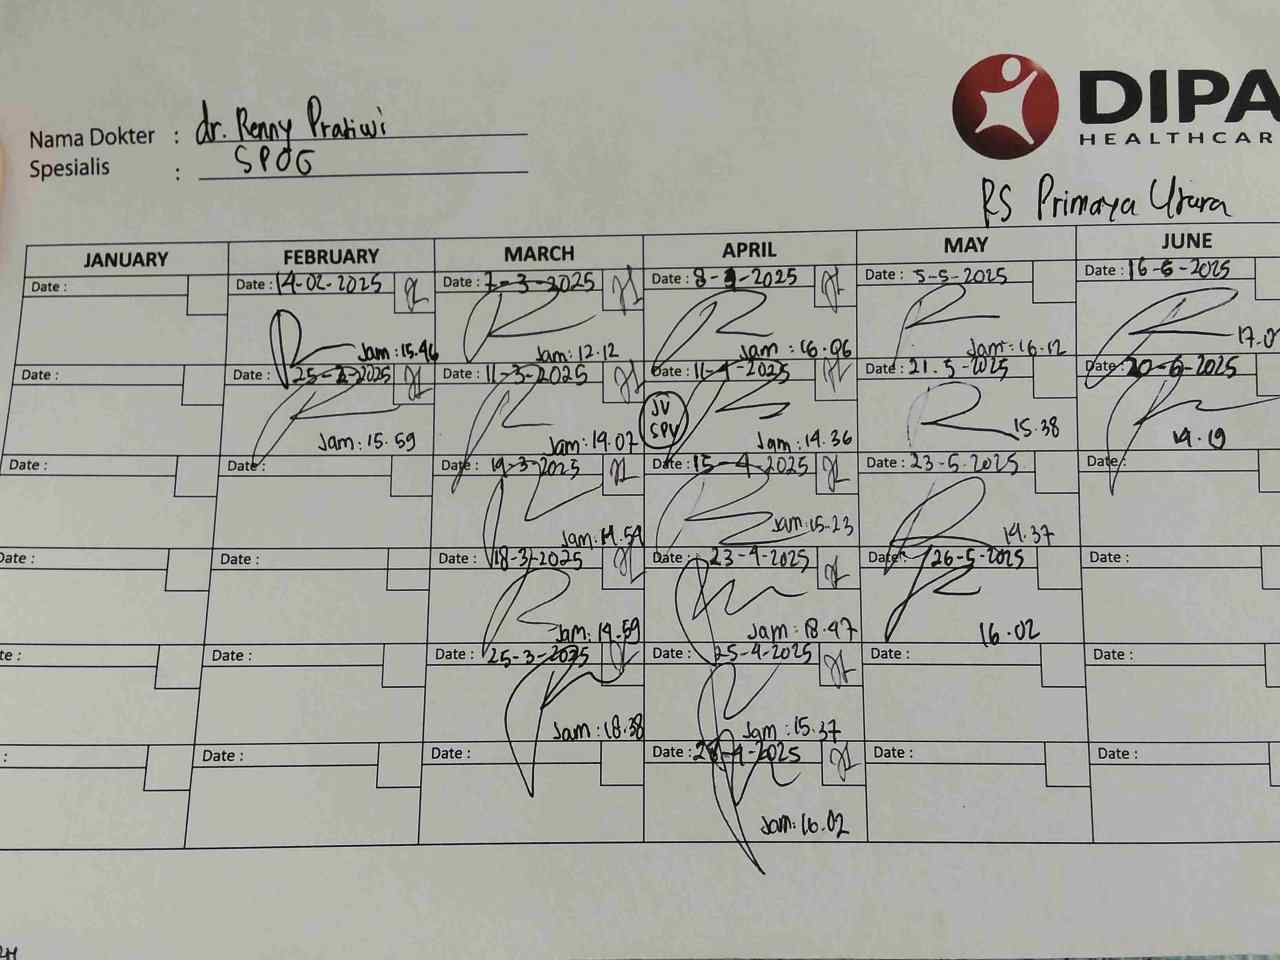 Nama Dokter : dr. Renny Pratiwi
Spesialis : SPOG
DIPA
HEALTHCAR
RS Primaya Utara
JANUARY FEBRUARY MARCH APRIL MAY JUNE
Date : Date : 14-02-2025 Date : 7-3-2025 Date : 8-4-2025 Date : 5-5-2025 Date : 16-6-2025
Jam : 15.46 Jam : 12.12 Jam : 16.06 Jam : 16.12 17.0
Date : Date : 25-2-2025 Date : 11-3-2025 Date : 11-4-2025 Date : 21.5-2025 Date : 20-6-2025
JV
SPV
Jam : 15.59 Jam : 14.07 Jam : 14.36 15.38 14.19
Date : Date : Date : 14-3-2025 Date : 15-4-2025 Date : 23-5-2025 Date :
Jam : 14.54 Jam : 15.23 14.37
Date : Date : Date : 18-3-2025 Date : 23-4-2025 Date : 26-5-2025 Date :
Jam : 14.59 Jam : 18.47 16.02
te : Date : Date : 25-3-2025 Date : 25-4-2025 Date : Date :
Jam : 18.38 Jam : 15.37
: Date : Date : Date : 28-4-2025 Date : Date :
Jam : 16.02